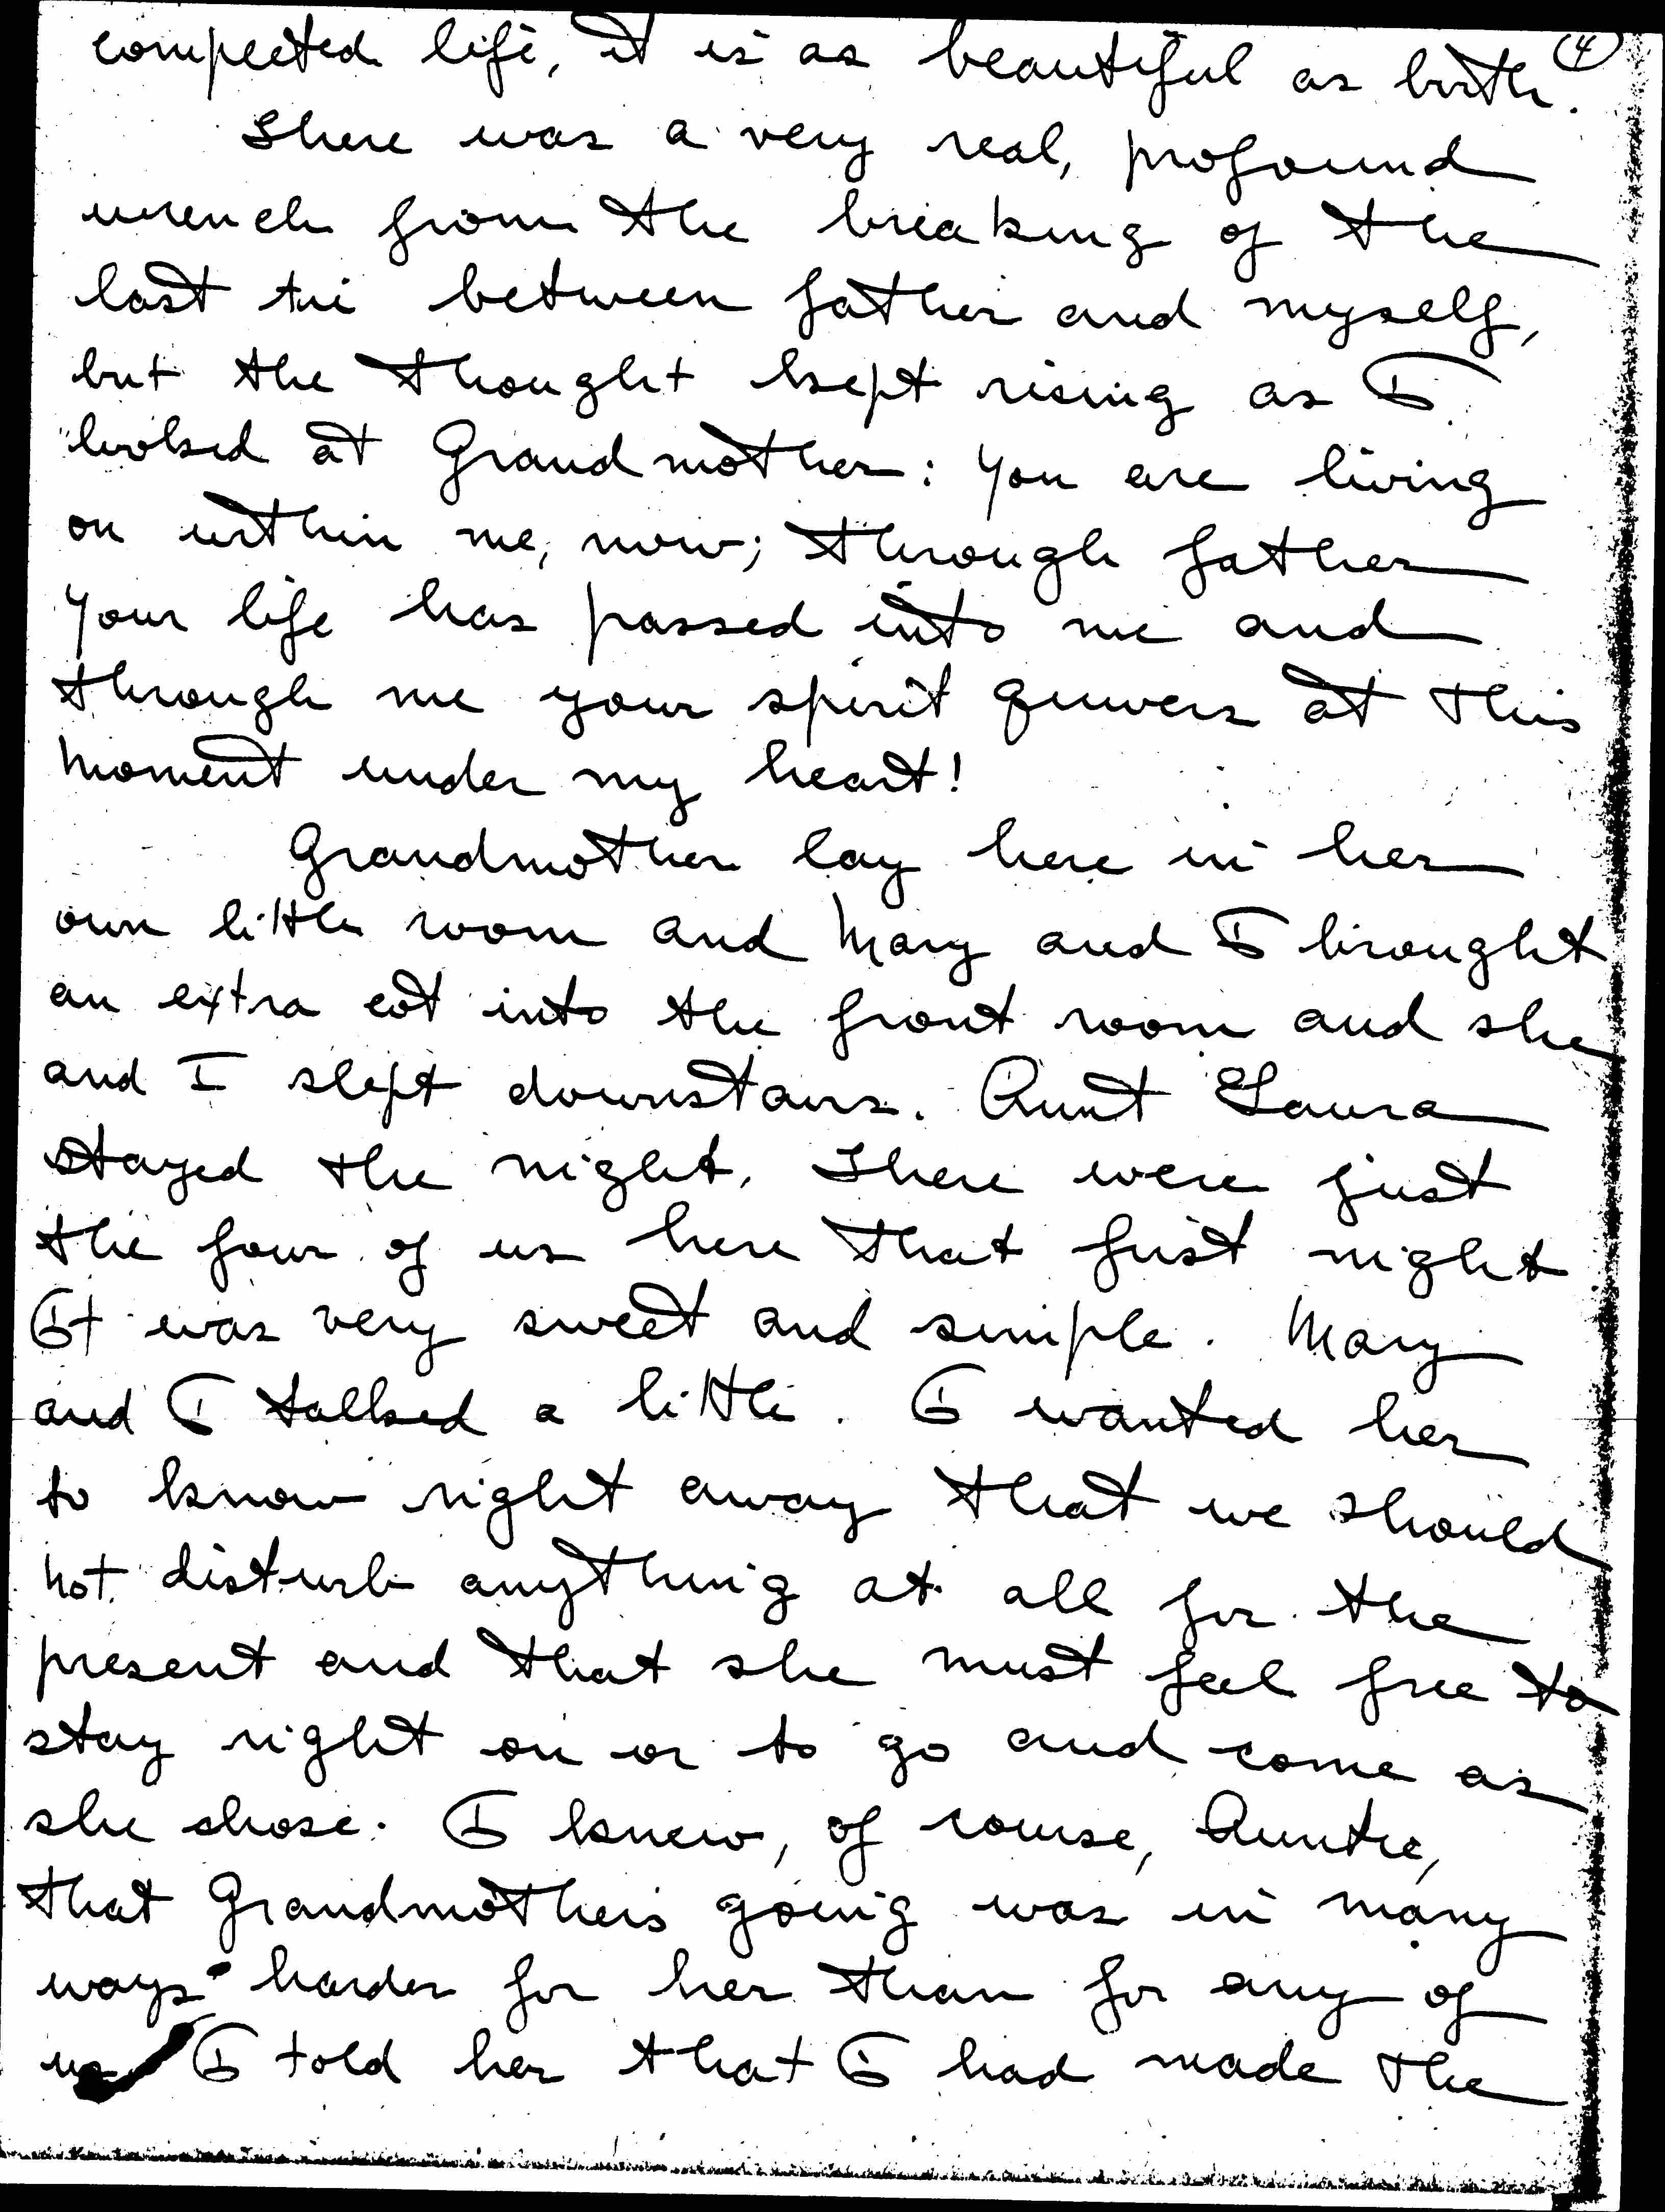 (4)
compleeted life, it is as beautiful as birth.
There was a very real, profound
wrench from the breaking of the
last tie between father and myself,
but the thought kept rising as I
looked at Grandmother: You are living
on within me, now; through father
your life has passed into me and
through me your spirit quivers at this
moment under my heart!
Grandmother lay here in her
own little room and Mary and I brought
an extra cot into the front room and she
and I slept downstairs. Aunt Laura
stayed the night. There were just
the four of us here that first night
It was very sweet and simple. Mary
and I talked a little. I wanted her
to know right away that we should
not disturb anything at all for the
present and that she must feel free to
stay right on or to go and come as
she chose. I knew, of course, Auntie,
that Grandmother's going was in many
ways harder for her than for any of
us I told her that I had made the